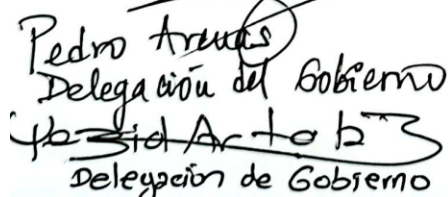 Pedro Arenas
Delegación del Gobierno
Yezid Arteta
Delegación de Gobierno